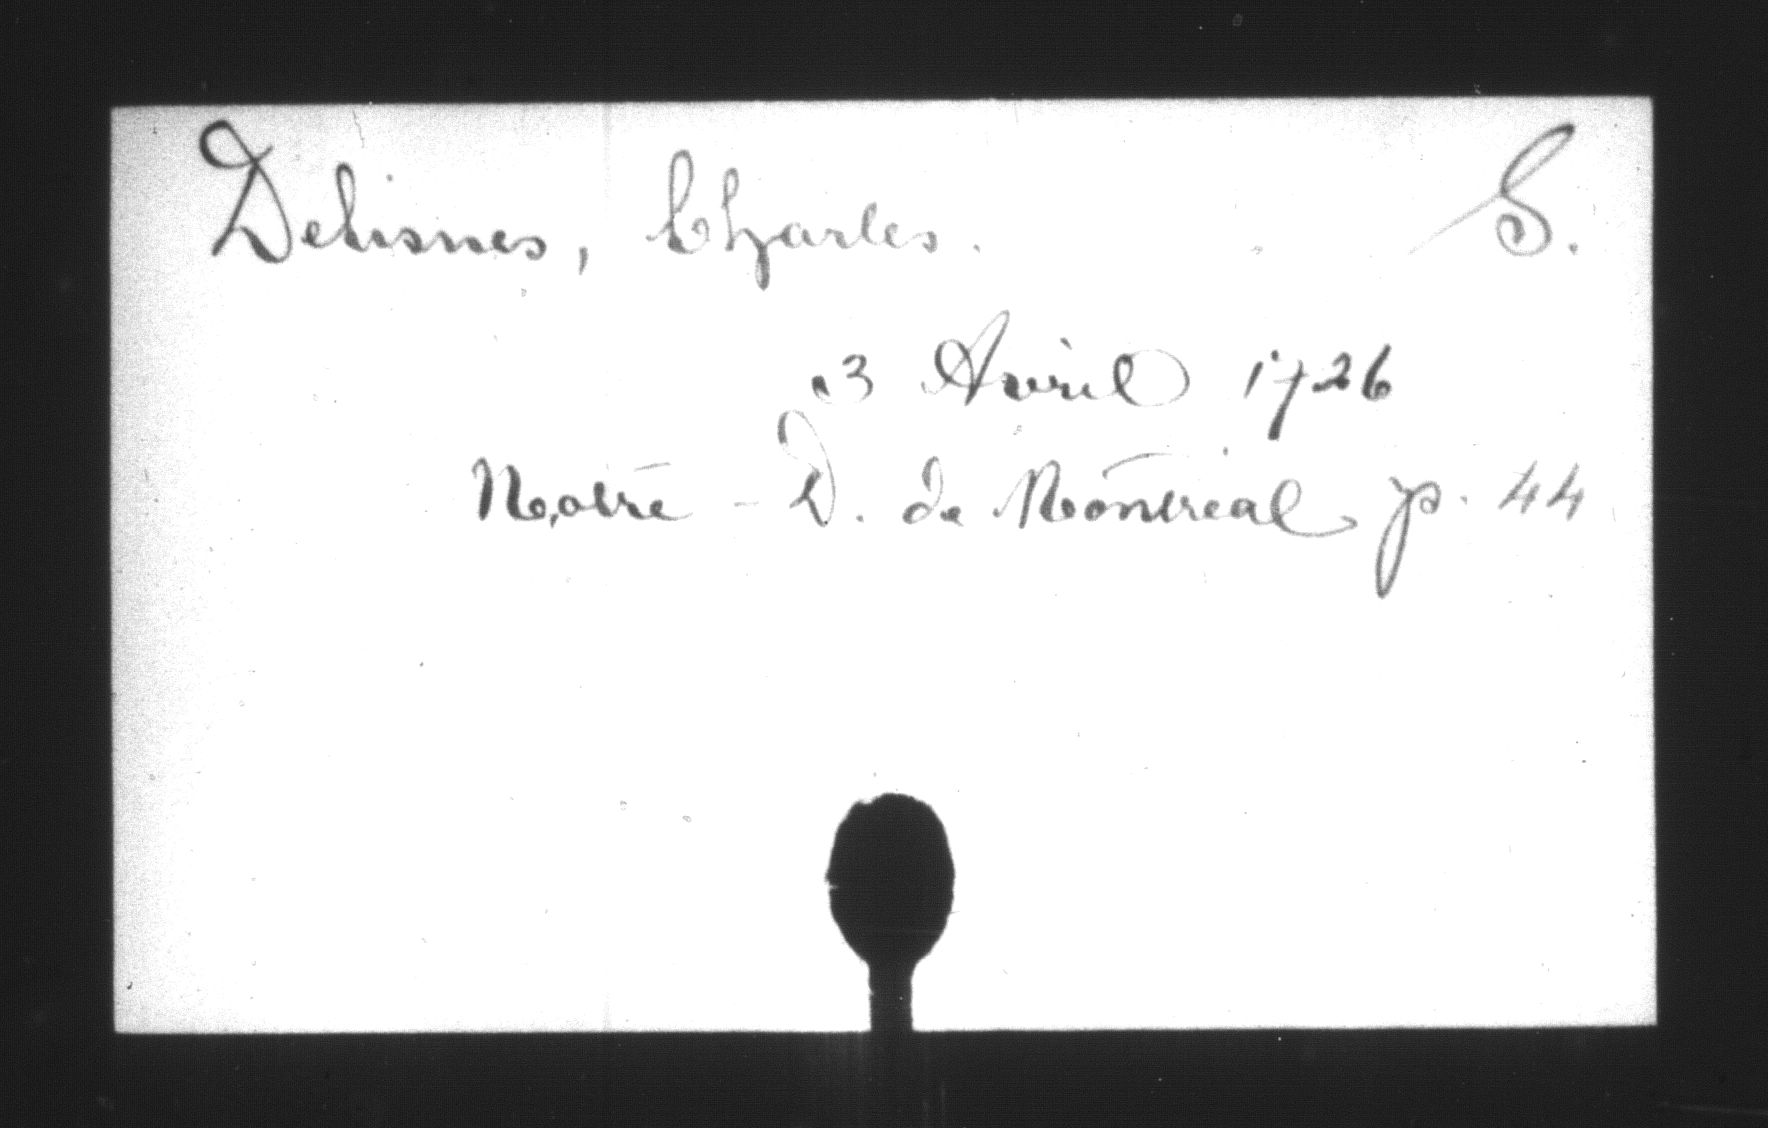 Delisnes, Charles. S.
3 Avril 1726
Notre - D. de Montréal p. 44